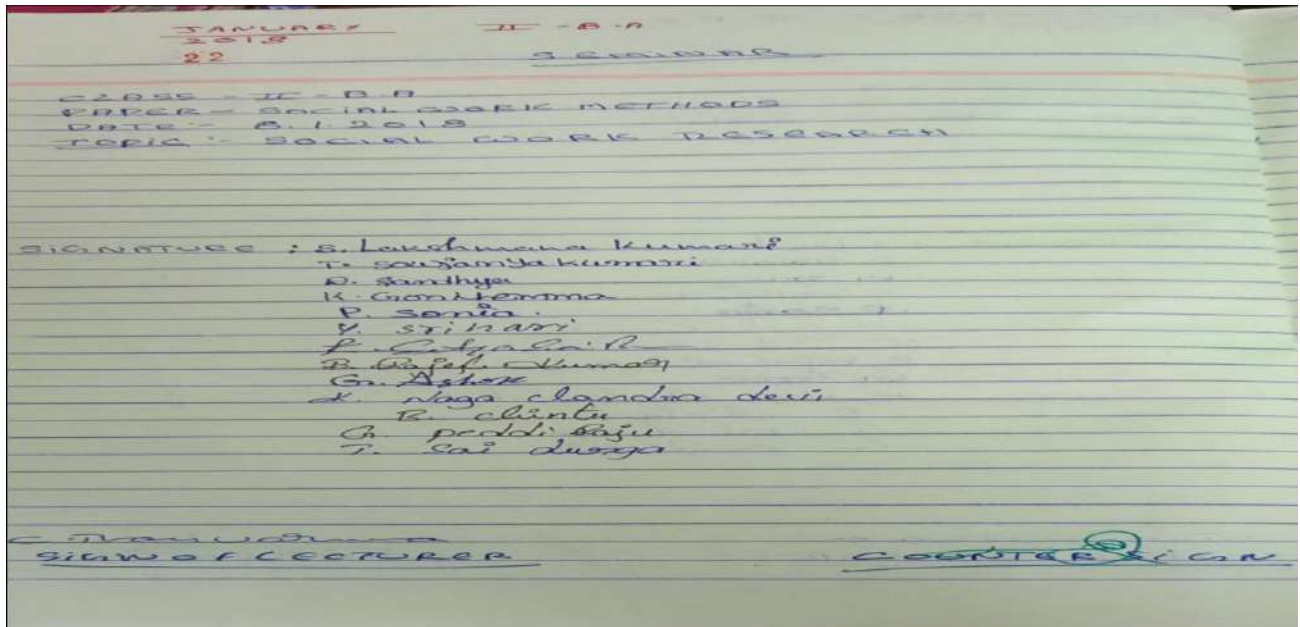 JANUARY II - B.A
2018
22 SEMINAR
CLASS - II - B.A
PAPER - SOCIAL WORK METHODS
DATE :- 8.1.2018
TOPIC :- SOCIAL WORK RESEARCH
SIGNATURE : S. Lakshmana Kumari
T. Soujanya Kumari
D. Sandhya
K.
P. Sonia.
Y. Srihari
P.
B. Kumar
G. Ashok
K. Naga chandra devi
B. chintu
G. peddi Raju
T. Sai durga
C.
SIGN OF LECTURER COUNTER SIGN